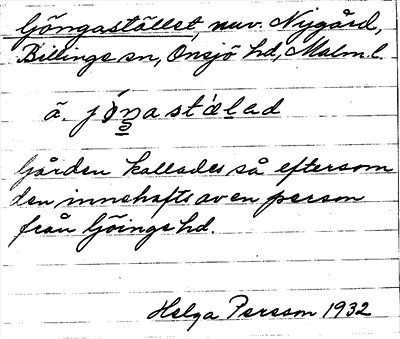 Göngastället, nuv. Nygård,
Billinge sn, Onsjö hd, Malm. l.
ä. jöŋastælad
Gården kallades så eftersom
den innehafts av en person
från Göinge hd.
Helga Persson 1932